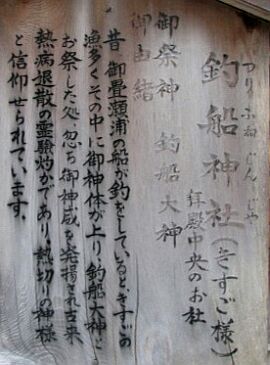 つりふねじんじゃ
釣船神社(きすご様)
拝殿中央のお社
御祭神 釣船大神
御由緒
昔 御畳瀬浦の船が釣をしているときすごの
漁多くその中に御神体が上り、釣船大神と
お祭した処、忽ち御神威を発揚され古来
熱病退散の霊験灼かであり、熱切りの神様
と信仰せられています。